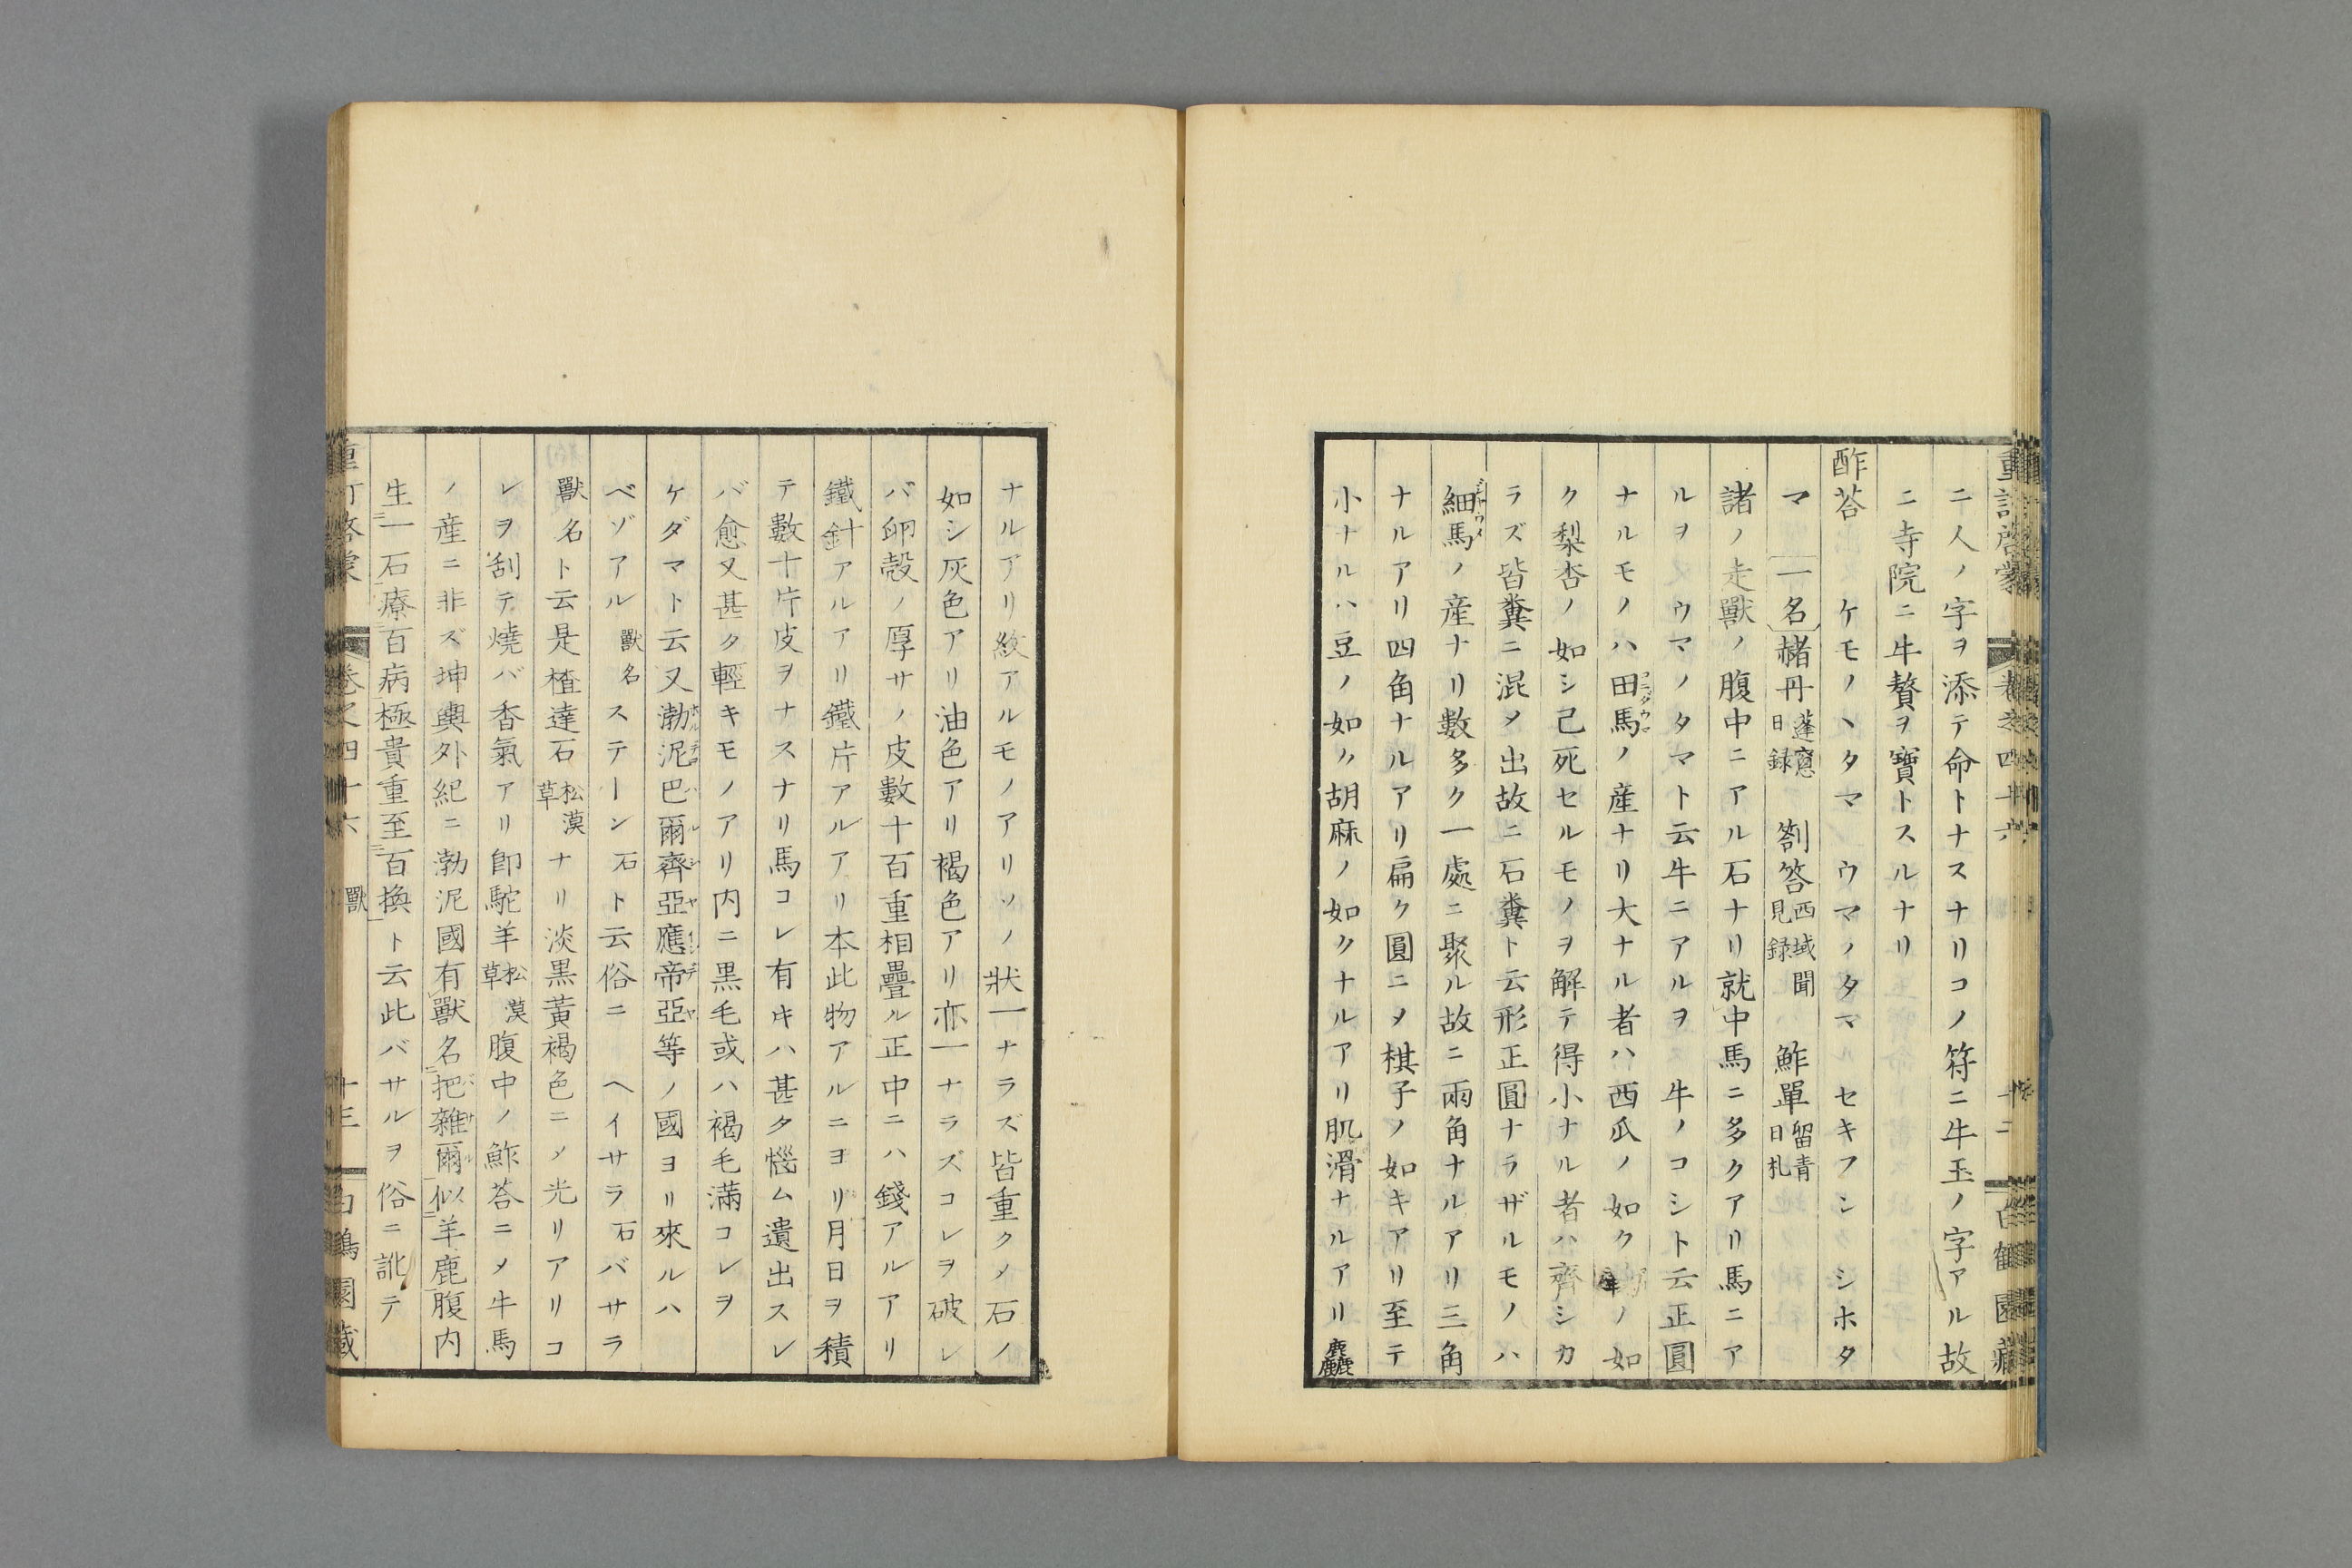 ニ人ノ字ヲ添テ命トナスナリコノ符ニ牛玉ノ字アル故
ニ寺院ニ牛贅ヲ寶トスルナリ
酢荅 ケモノヽタマ ウマノタマ セキフン シホタ
マ 一名 赭丹 蓬窻日録 劄答 西域聞見録 鮓單 留青日札
諸ノ走獸ノ腹中ニアル石ナリ就中馬ニ多クアリ馬ニア
ルヲ ウマノタマト云牛ニアルヲ 牛ノコシト云正圓
ナルモノハ田馬ノ産ナリ大ナル者ハ西瓜ノ如ク ノ如
ク梨杏ノ如シ己死セルモノヲ解テ得小ナル者ハ齊シカ
ラズ皆糞ニ混メ出故ニ石糞ト云形正圓ナラザルモノハ
細馬ノ産ナリ數多ク一處ニ聚ル故ニ兩角ナルアリ三角
ナルアリ四角ナルアリ扁ク圓ニメ棋子ノ如キアリ至テ
小ナルハ豆ノ如ク胡麻ノ如クナルアリ肌滑ナルアリ麤
ナルアリ紋アルモノアリソノ狀一ナラズ皆重クメ石ノ
如シ灰色アリ油色アリ褐色アリ亦一ナラズコレヲ破レ
バ卵殻ノ厚サノ皮數十百重相疊ル正中ニハ錢アルアリ
鐵針アルアリ鐵片アルアリ本此物アルニヨリ月日ヲ積
テ數十片皮ヲナスナリ馬コレ有キハ甚タ惱ム遺出スレ
バ愈又甚ク輕キモノアリ内ニ黒毛或ハ褐毛滿コレヲ
ケダマト云又渤泥巴爾齊亞應帝亞等ノ國ヨリ來ルハ
ベゾアル 獸名 ステーン 石ト云俗ニ ヘイサラ 石バサラ
獸名ト云是楂達石 松漠草 ナリ淡黒黃褐色ニメ光リアリコ
レヲ刮テ燒バ香氣アリ卽駝羊 松漠草 腹中ノ鮓荅ニメ牛馬
ノ産ニ非ズ坤輿外紀ニ渤泥國有獸名把雜爾似羊鹿腹内
生一石療百病極貴重至百換ト云此バサルヲ俗ニ訛テ